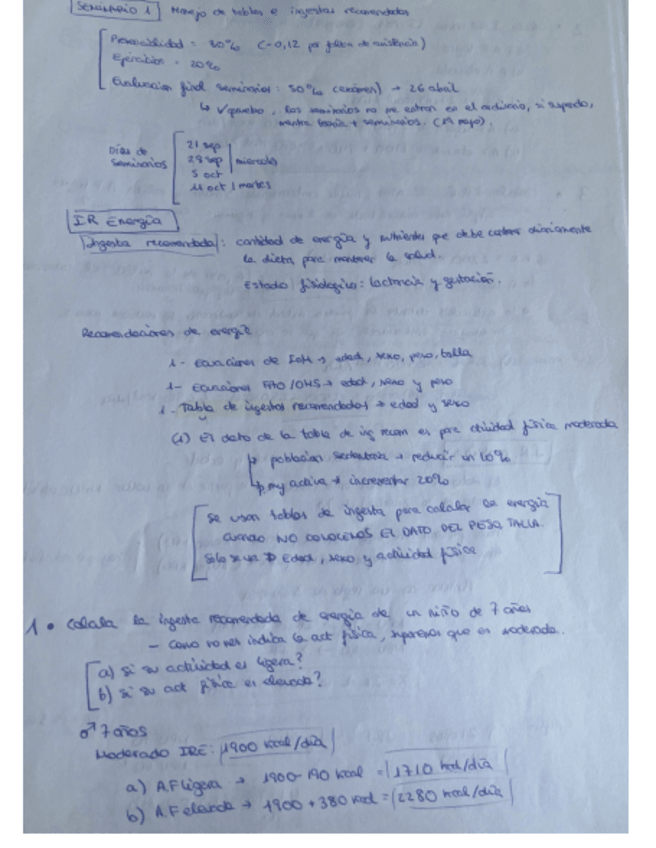 SEMINARIO 1 Manejo de tablas e ingestas recomendadas
Presencialidad = 30% (-0,12 por faltas de asistencia)
Ejercicios = 20%
Evaluación final seminarios: 50% (exámen) → 26 abril
↳ Si apruebo, los seminarios no me entran en el ordinario, si suspendo,
teoría + seminarios. (19 mayo).
Días de
seminarios
21 sep
28 sep | miercoles
5 oct
11 oct | martes
IR Energía
Ingesta recomendada: cantidad de energía y nutrientes que debe contener diariamente
la dieta para mantener la salud.
Estado fisiologico: lactancia y gestación.
Recomendaciones de energía
1- Ecuaciones de IOM → edad, sexo, peso, talla
1- Ecuaciones FAO/OMS → edad, sexo y peso
1- Tabla de ingestas recomendadas → edad y sexo
(1) El dato de la tabla de ing recom es para actividad física moderada
↳ población sedentaria → reducir un 10%
↳ p. muy activa → incrementar 20%
Se usan tablas de ingesta para calcular la energía
cuando NO CONOCEMOS EL DATO DEL PESO, TALLA.
Sólo edad, sexo y actividad física
1 • Calcula la ingesta recomendada de energía de un niño de 7 años
- Como no nos indica la act física, suponemos que es moderada.
a) si su actividad es ligera?
b) si su act física es elevada?
♂ 7 años
Moderado IRE: 1900 kcal/día
a) A.F ligera → 1900-190 kcal = 1710 kcal/día
b) A.F elevada → 1900 + 380 kcal = 2280 kcal/día